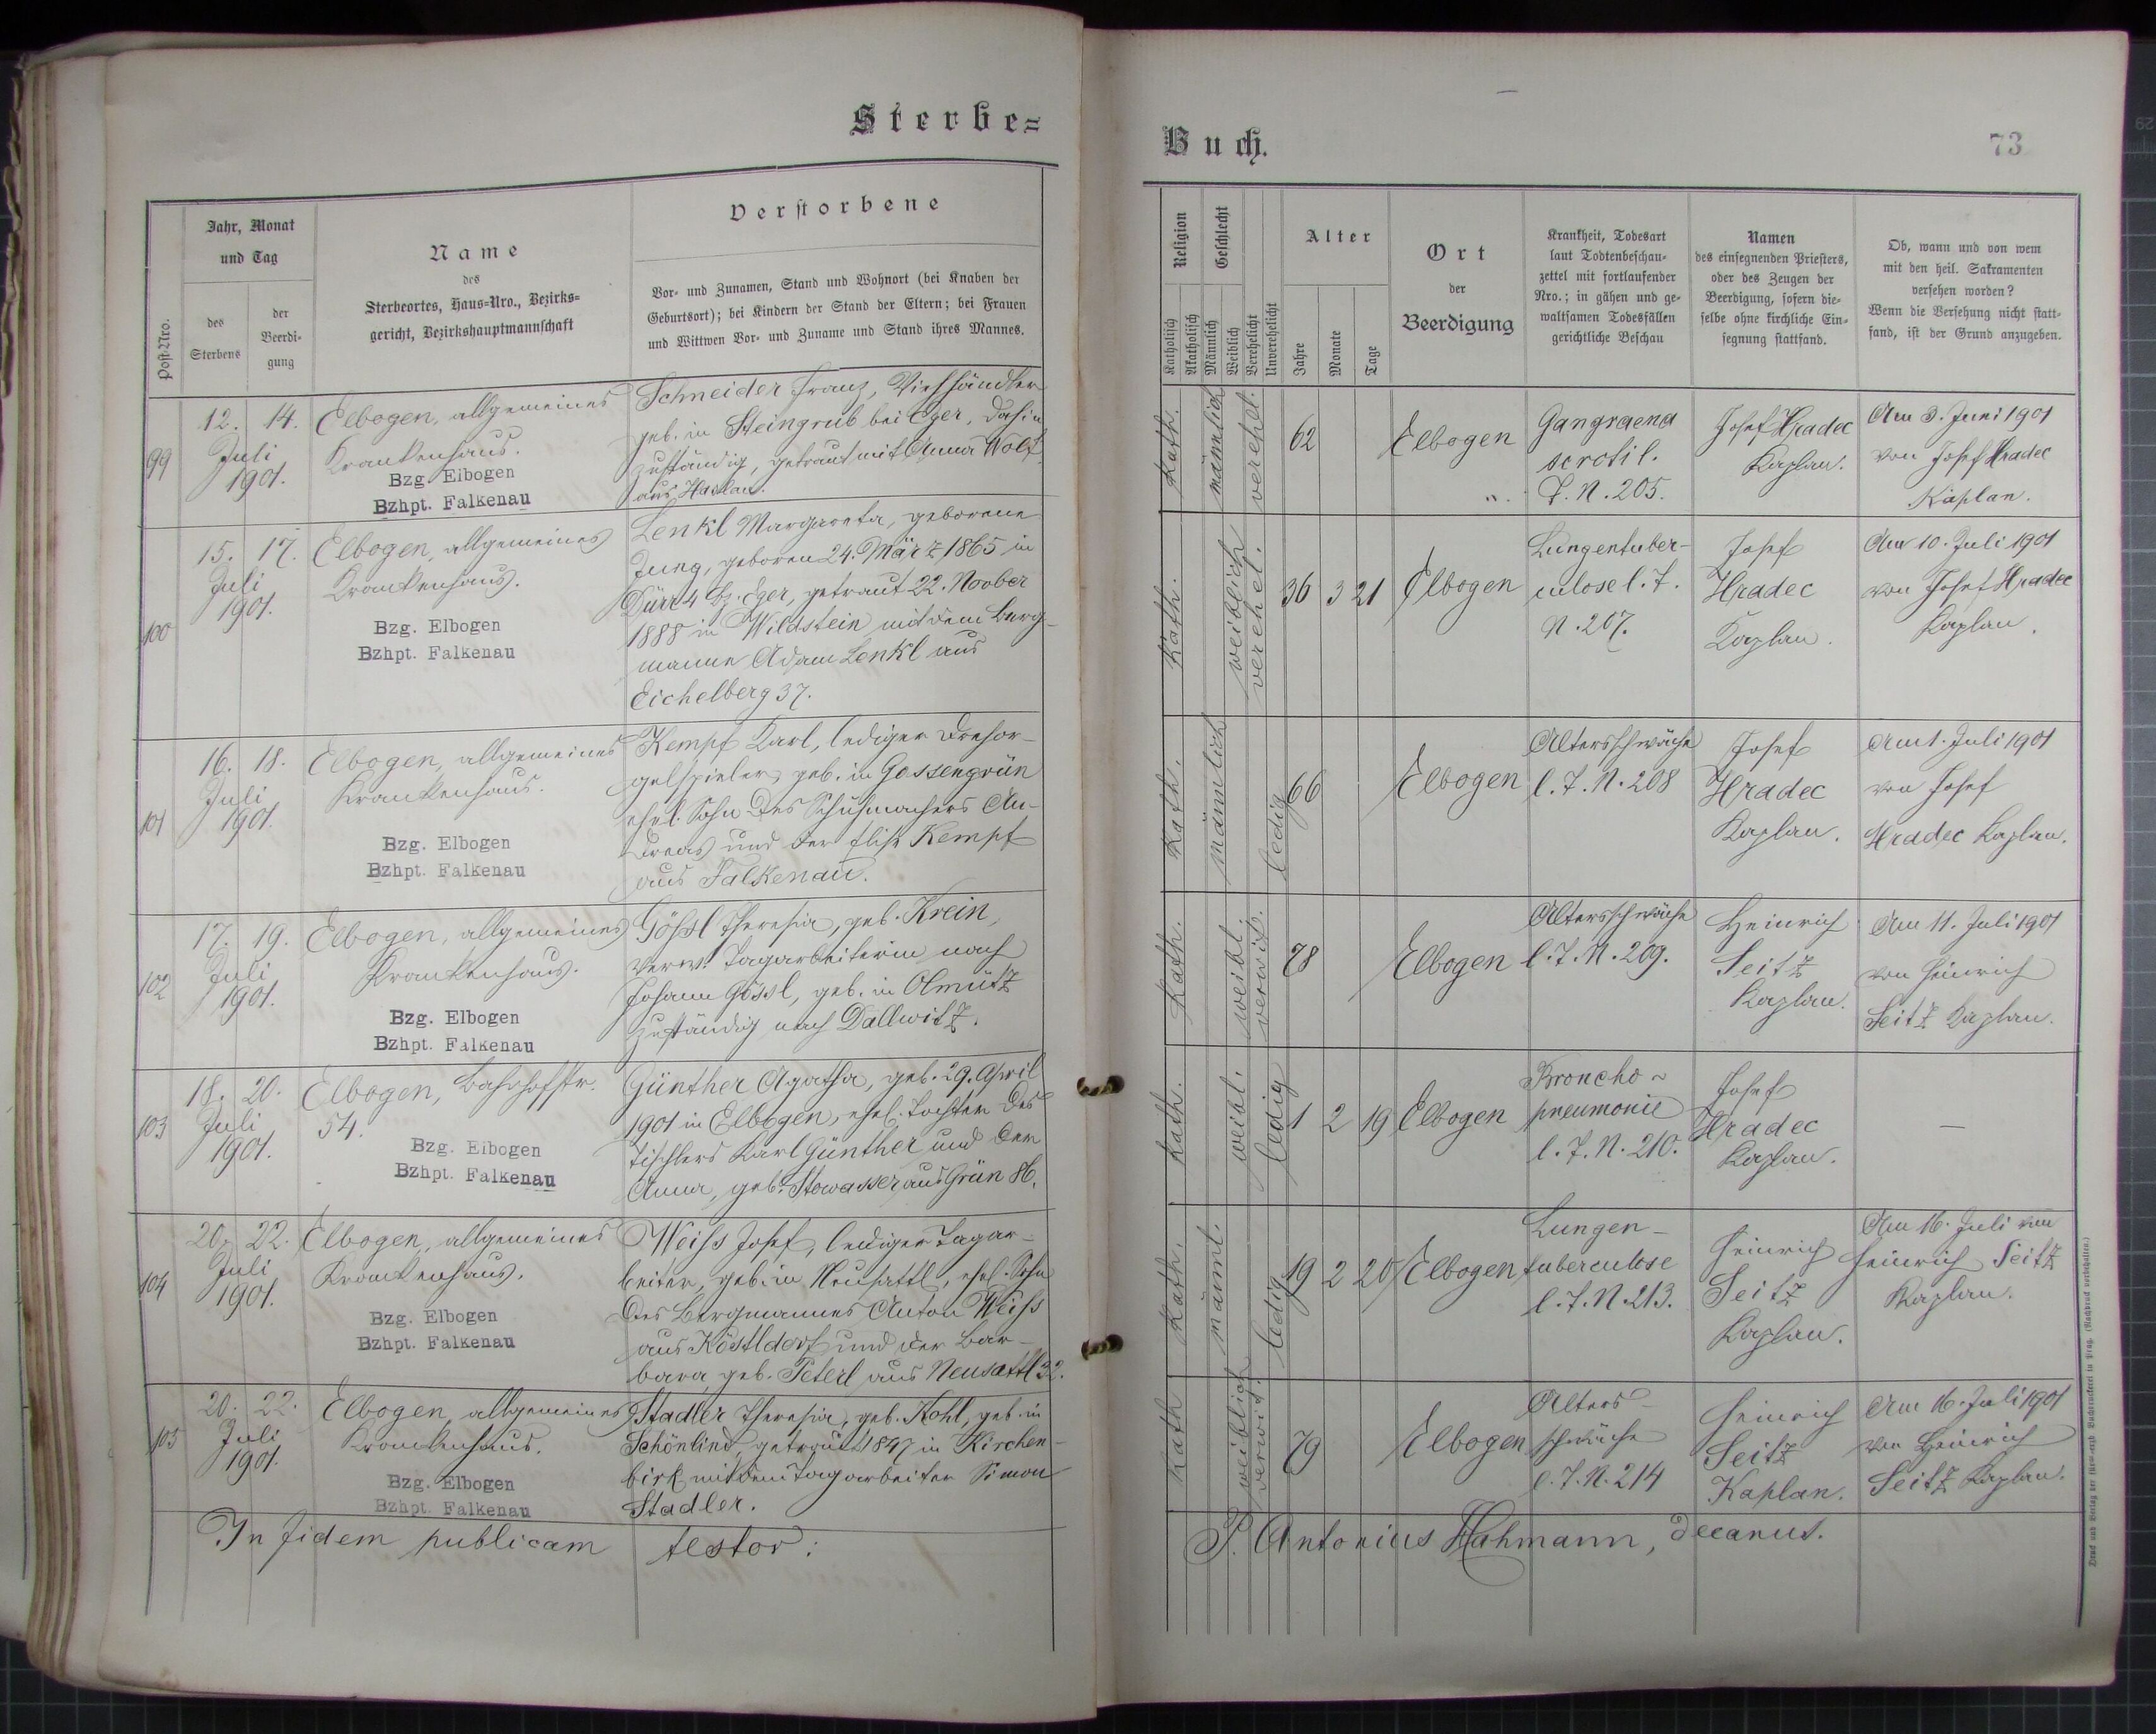 Sterbe=
Jahr, Monat
und Tag
Name
des
Sterbeortes, Haus=Nro., Bezirks=
gericht, Bezirkshauptmannschaft
Verstorbene
Vor- und Zunamen, Stand und Wohnort (bei Knaben der
Geburtsort); bei Kindern der Stand der Eltern; bei Frauen
und Wittwen Vor- und Zuname und Stand ihres Mannes.
Post=Nro.
des
Sterbens
der
Beerdi-
gung
99
12. 14.
Juli
1901.
Elbogen, allgemeines
Krankenhaus.
Bzg. Elbogen
Bzhpt. Falkenau
Schneider Franz, Viehhändler
geb. in Steingrub bei Eger, dahin
zuständig, getraut mit Anna Wolf
aus Haslau.
100
15. 17.
Juli
1901.
Elbogen, allgemeines
Krankenhaus.
Bzg. Elbogen
Bzhpt. Falkenau
Lenkl Margareta, geborene
Jung, geboren 24. März 1865 in
Dürr 4 Bz. Eger, getraut 22. Noober
1888 in Wildstein mit dem Berg-
manne Adam Lenkl aus
Eichelberg 37.
101
16. 18.
Juli
1901.
Elbogen, allgemeines
Krankenhaus.
Bzg. Elbogen
Bzhpt. Falkenau
Kempf Karl, lediger Drehor-
gelspieler, geb. in Gossengrün
ehel. Sohn des Schuhmachers An-
dreas und der Elis. Kempf
aus Falkenau.
102
17. 19.
Juli
1901.
Elbogen, allgemeines
Krankenhaus.
Bzg. Elbogen
Bzhpt. Falkenau
Gößl Theresia, geb. Krein,
verw. Tagarbeiterin nach
Johann Gössl, geb. in Olmütz
zuständig nach Dallwitz.
103
18. 20.
Juli
1901.
Elbogen, Bahnhofstr.
54.
Bzg. Elbogen
Bzhpt. Falkenau
Günther Agatha, geb. 29. April
1901 in Elbogen, ehel. Tochter des
Tischlers Karl Günther und der
Anna, geb. Stowasser aus Grün 86.
104
20. 22.
Juli
1901.
Elbogen, allgemeines
Krankenhaus.
Bzg. Elbogen
Bzhpt. Falkenau
Weiss Josef, lediger Tagar-
beiter, geb. in Neusattl, ehel. Sohn
des Bergmannes Anton Weiss
aus Köstldorf und der Bar-
bara geb. Peterl aus Neusattl 32.
105
20. 22.
Juli
1901.
Elbogen, allgemeines
Krankenhaus.
Bzg. Elbogen
Bzhpt. Falkenau
Stadler Theresia, geb. Kohl, geb. in
Schönlind, getraut 1847 in Kirchen-
birk mit dem Tagarbeiter Simon
Stadler.
In fidem publicam testor:
Buch.
73
Religion
Geschlecht
Alter
Ort
der
Beerdigung
Krankheit, Todesart
laut Todtenbeschau-
zettel mit fortlaufender
Nro.; in gähen und ge-
waltsamen Todesfällen
gerichtliche Beschau
Namen
des einsegnenden Priesters,
oder des Zeugen der
Beerdigung, sofern die-
selbe ohne kirchliche Ein-
segnung stattfand.
Ob, wann und von wem
mit den heil. Sakramenten
versehen worden?
Wenn die Versehung nicht statt-
fand, ist der Grund anzugeben.
Katholisch
Akatholisch
Männlich
Weiblich
Verehelicht
Unverehelicht
Jahre
Monate
Tage
Kath.
männlich
verehel.
62
Elbogen
Gangraena
scrotil.
T. N. 205.
Josef Hradec
Kaplan.
Am 3. Juni 1901
von Josef Hradec
Kaplan.
Kath.
weiblich
verehel.
36 3 21
Elbogen
Lungentuber-
culose l. T.
N. 207.
Josef
Hradec
Kaplan.
Am 10. Juli 1901
von Josef Hradec
Kaplan.
Kath.
männlich
ledig
66
Elbogen
Altersschwäche
l. T. N. 208
Josef
Hradec
Kaplan.
Am 1. Juli 1901
von Josef
Hradec Kaplan.
Kath.
weibl.
verwit.
78
Elbogen
Altersschwäche
l. T. N. 209.
Heinrich
Seitz
Kaplan.
Am 11. Juli 1901
von Heinrich
Seitz Kaplan.
Kath.
weibl.
ledig
1 2 19
Elbogen
Broncho-
pneumonie
l. T. N. 210.
Josef
Hradec
Kaplan.
—
Kath.
männl.
ledig
19 2 20
Elbogen
Lungen-
tuberculose
l. T. N. 213.
Heinrich
Seitz
Kaplan.
Am 16. Juli von
Heinrich Seitz
Kaplan.
Kath
weiblich
verwit.
79
Elbogen
Alters-
schwäche
l. T. N. 214
Heinrich
Seitz
Kaplan.
Am 16. Juli 1901
von Heinrich
Seitz Kaplan.
P. Antonius Hahmann, decanus.